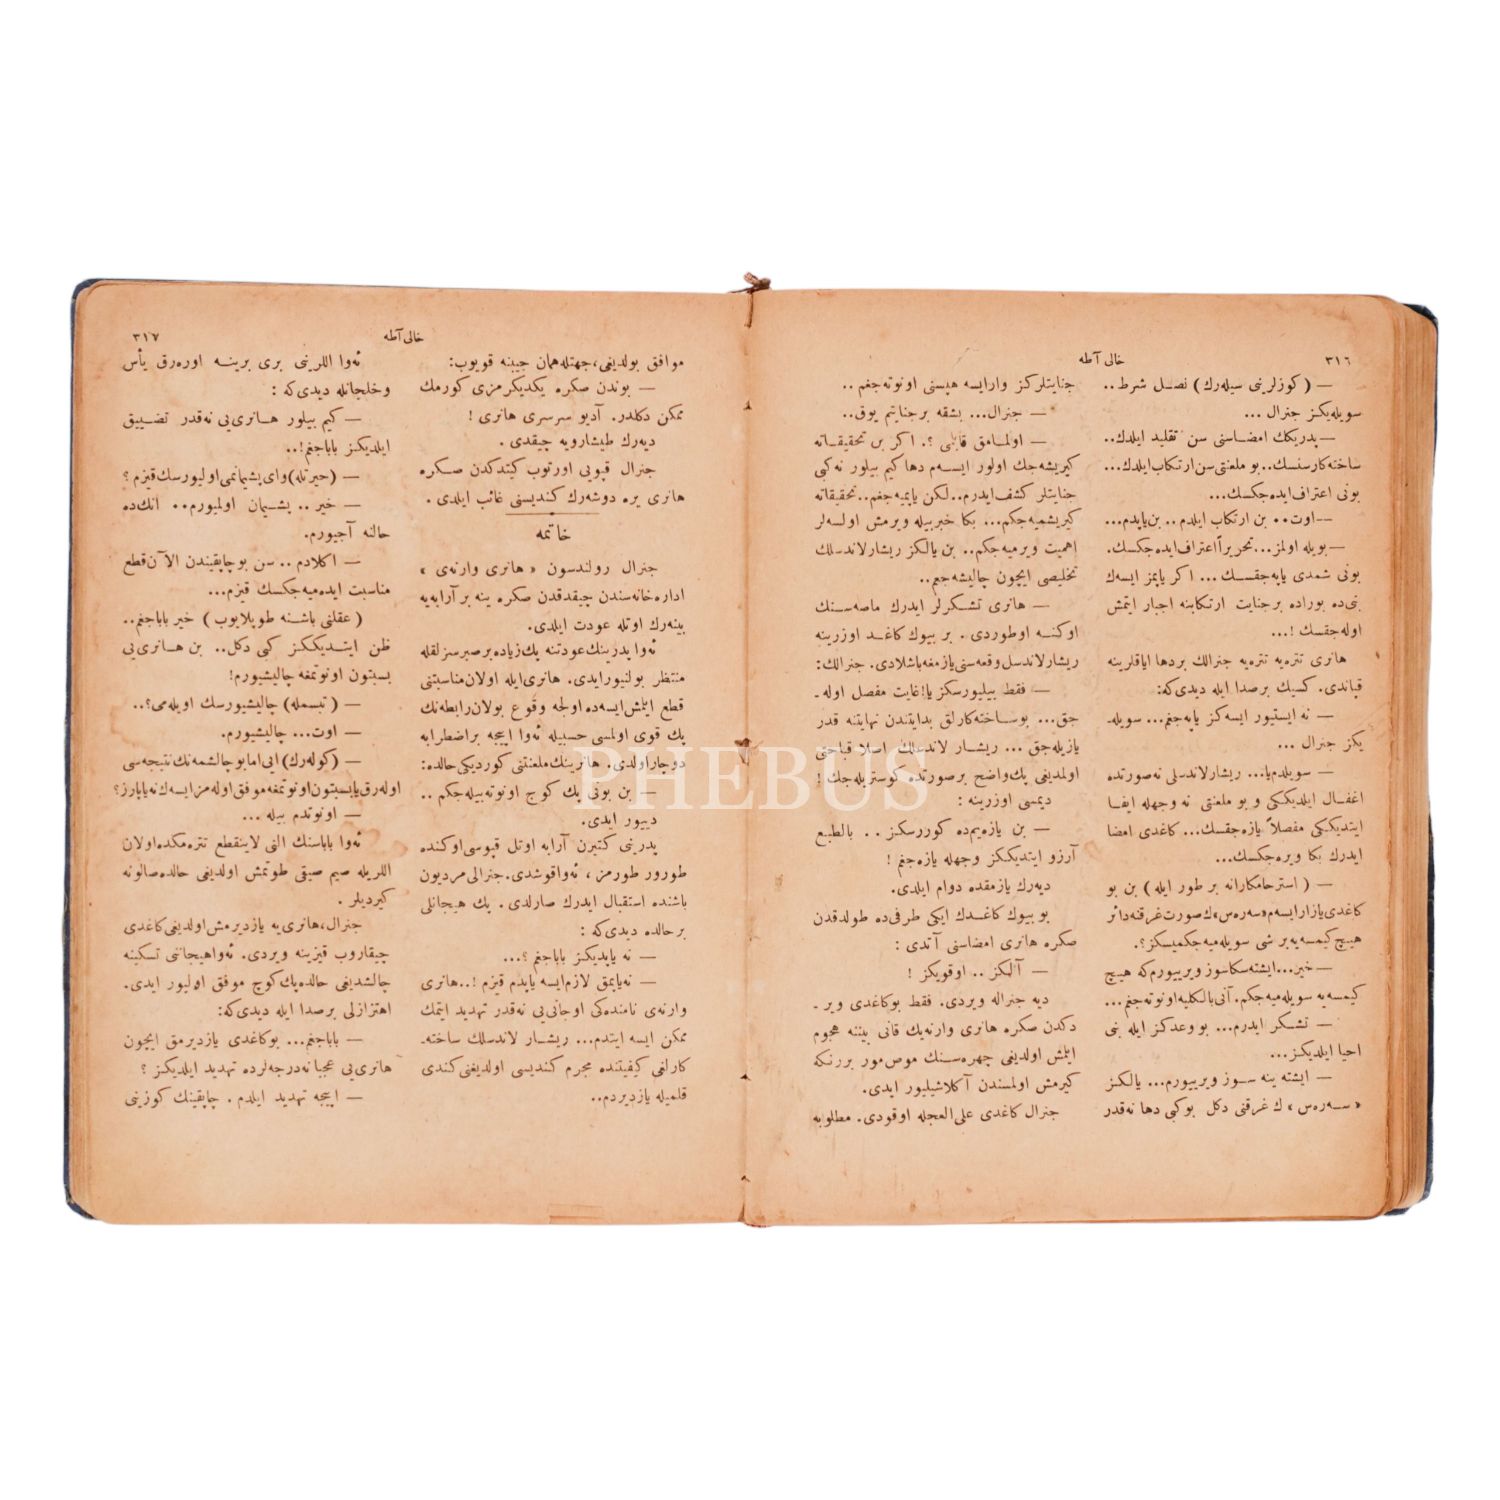 ٣١٦
خالی آطه
— (کوزلرینی سیله‌رك) نصل شرط..
سویله‌یکز جنرال ...
— پدریکك امضاسنی سن تقلید ایلدك..
ساخته‌کارسنسك.. بو ملعنتی سن ارتکاب ایلدك...
بونی اعتراف ایده‌جکسك...
— اوت.. بن ارتکاب ایلدم.. بن یاپدم...
— بویله اولمز... تحریراً اعتراف ایده‌جکسك.
بونی شمدی یاپه‌جقسك... اکر یاپمز ایسه‌ك
بنی‌ده بوراده بر جنایت ارتکابنه اجبار ایتمش
اوله‌جقسك !...
هانری تتره‌یه تتره‌یه جنرالك بردها ایاقلرینه
قپاندی. کسیك برصدا ایله دیدی‌که:
— نه ایستیور ایسه‌کز یاپه‌جغم... سویله‌ـ
یکز جنرال ...
— سویلدم‌یا... ریشار لاندسلی نه صورتده
اغفال ایلدیککی و بو ملعنتی نه وجهله ایفا
ایتدیککی مفصلاً یازه‌جقسك... کاغدی امضا
ایدرك بکا ویره‌جکسك...
— (استرحامکارانه بر طور ایله) بن بو
کاغدی یازار ایسه‌م «سه‌ره‌س»ك صورت غرقنه دائر
هیچ کیمسه‌یه بر شی سویله‌میه‌جکمیسکز؟.
— خیر... ایشته سکا سوز ویرییورم که هیچ
کیمسه‌یه سویله‌میه‌جکم. آنی بالکلیه اونوته‌جغم...
— تشکر ایدرم... بو وعدکز ایله بنی
احیا ایلدیکز...
— ایشته ینه سوز ویرییورم... یالکز
«سه‌ره‌س» ك غرقنی دکل بوکبی دها نه‌قدر
جنایتلرکز وارایسه هپسنی اونوته‌جغم..
— جنرال... بشقه بر جنایتم یوق..
— اولمامق قابلی ؟. اکر بن تحقیقاته
کیریشه‌جك اولور ایسه‌م دها کیم بیلور نه‌کبی
جنایتلر کشف ایدرم.. لکن یاپمیه‌جغم.. تحقیقاته
کیریشمیه‌جکم... بکا خبر بیله ویرمش اولسه‌لر
اهمیت ویرمیه‌جکم.. بن یالکز ریشار لاندسلك
تخلیصی ایچون چالیشه‌جغم..
— هانری تشکرلر ایدرك ماصه‌سنك
اوکنه اوطوردی. بر بیوك کاغد اوزرینه
ریشار لاندسل وقعه‌سنی یازمغه باشلادی. جنرالك:
— فقط بیلیورسکز یا! غایت مفصل اوله‌ـ
جق... بو ساخته‌کارلق بدایتندن نهایتنه قدر
یازیله‌جق ... ریشار لاندسلك اصلا قباحتی
اولمدیغی پك واضح بر صورتده کوستریله‌جك !
دیمسی اوزرینه :
— بن یازه‌یم‌ده کوررسکز .. بالطبع
آرزو ایتدیککز وجهله یازه‌جغم !
دیه‌رك یازمقده دوام ایلدی.
بو بیوك کاغدك ایکی طرفی‌ده طولدقدن
صکره هانری امضاسنی آتدی :
— آلکز .. اوقویکز !
دیه جنراله ویردی. فقط بو کاغدی ویرـ
دکدن صکره هانری وارنه‌یك قانی بیننه هجوم
ایتمش اولدیغی چهره‌سنك موص مور بررنکه
کیرمش اولمسندن آکلاشیلیور ایدی.
جنرال کاغدی علی‌العجله اوقودی. مطلوبه
خالی آطه
٣١٧
موافق بولدیغی، جهتله همان جیبنه قویوب:
— بوندن صکره یکدیکرمزی کورمك
ممکن دکلدر. آدیو سرسری هانری !
دیه‌رك طیشارویه چیقدی .
جنرال قپویی اورتوب کیتدکدن صکره
هانری یره دوشه‌رك کندیسنی غائب ایلدی .
خاتمه
جنرال رولندسون «هانری وارنه‌ی»
اداره‌خانه‌سندن چیقدقدن صکره ینه بر آرابه‌یه
بینه‌رك اوتله عودت ایلدی.
ئه‌وا پدرینك عودتنه پك زیاده بر صبرسزلقله
منتظر بولنیور ایدی. هانری ایله اولان مناسبتنی
قطع ایتمش ایسه‌ده اولجه وقوع بولان رابطه‌نك
پك قوی اولمسی حسبیله ئه‌وا ایپجه بر اضطرابه
دوچار اولدی. هانرینك ملعنتنی کوردیکی حالده:
— بن بونی پك کوج اونوته‌بیله‌جکم ..
دییور ایدی.
پدرینی کتیرن آرابه اوتل قپوسی اوکنده
طورور طورمز ، ئه‌وا قوشدی. جنرالی مردیون
باشنده استقبال ایدرك صارلدی . پك هیجانلی
بر حالده دیدی‌که :
— نه یاپدیکز باباجغم ؟...
— نه یاپمق لازم ایسه یاپدم قیزم !.. هانری
وارنه‌ی نامنده‌کی اوجانی‌یی نه‌قدر تهدید ایتمك
ممکن ایسه ایتدم... ریشار لاندسلك ساخته‌ـ
کارلغی کیفیتنده مجرم کندیسی اولدیغنی کندی
قلمیله یازدیردم..
ئه‌وا اللرینی بری برینه اوره‌رق یأس
وخلجانله دیدی‌که :
— کیم بیلور هانری‌یی نه‌قدر تضییق
ایلدیکز باباجغم!..
— (حیرتله) وای پشیمانمی اولیورسك قیزم ؟
— خیر .. پشیمان اولمیورم.. آنك‌ده
حالنه آجیورم.
— اکلادم .. سن بو چاپقیندن الآن قطع
مناسبت ایده‌میه‌جکسك قیزم...
(عقلنی باشنه طوپلایوب ) خیر باباجغم..
ظن ایتدیککز کبی دکل.. بن هانری‌یی
بسبتون اونوتمغه چالیشیورم!
— (تبسمله) چالیشیورسك اویله‌می؟..
— اوت... چالیشیورم.
— (کوله‌رك) ایی اما بو چالشمه‌نك نتیجه‌سی
اوله‌رق یا بسبتون اونوتمغه موفق اوله‌مز ایسه‌ك نه یاپارز؟
— اونوتدم بیله ...
ئه‌وا باباسنك الی لاینقطع تتره‌مکده اولان
اللریله صیم صیقی طوتمش اولدیغی حالده صالونه
کیردیلر .
جنرال، هانری‌یه یازدیرمش اولدیغی کاغدی
چیقاروب قیزینه ویردی. ئه‌وا هیجاننی تسکینه
چالشدیغی حالده پك کوج موفق اولیور ایدی.
اهتزازلی برصدا ایله دیدی‌که:
— باباجغم... بو کاغدی یازدیرمق ایچون
هانری‌یی عجبا نه درجه‌لرده تهدید ایلدیکز ؟
— ایپجه تهدید ایلدم . چاپقینك کوزینی
PHEBUS